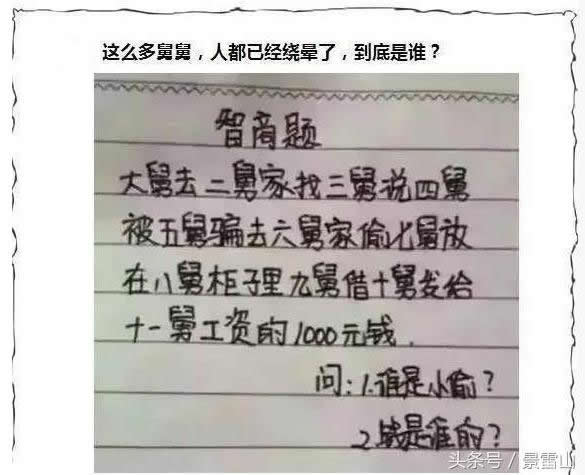 这么多舅舅，人都已经绕晕了，到底是谁？
智商题
大舅去二舅家找三舅说四舅
被五舅骗去六舅家偷七舅放
在八舅柜子里九舅借十舅发给
十一舅工资的1000元钱.
问:1.谁是小偷?
2.钱是谁的?
头条号／景雷山